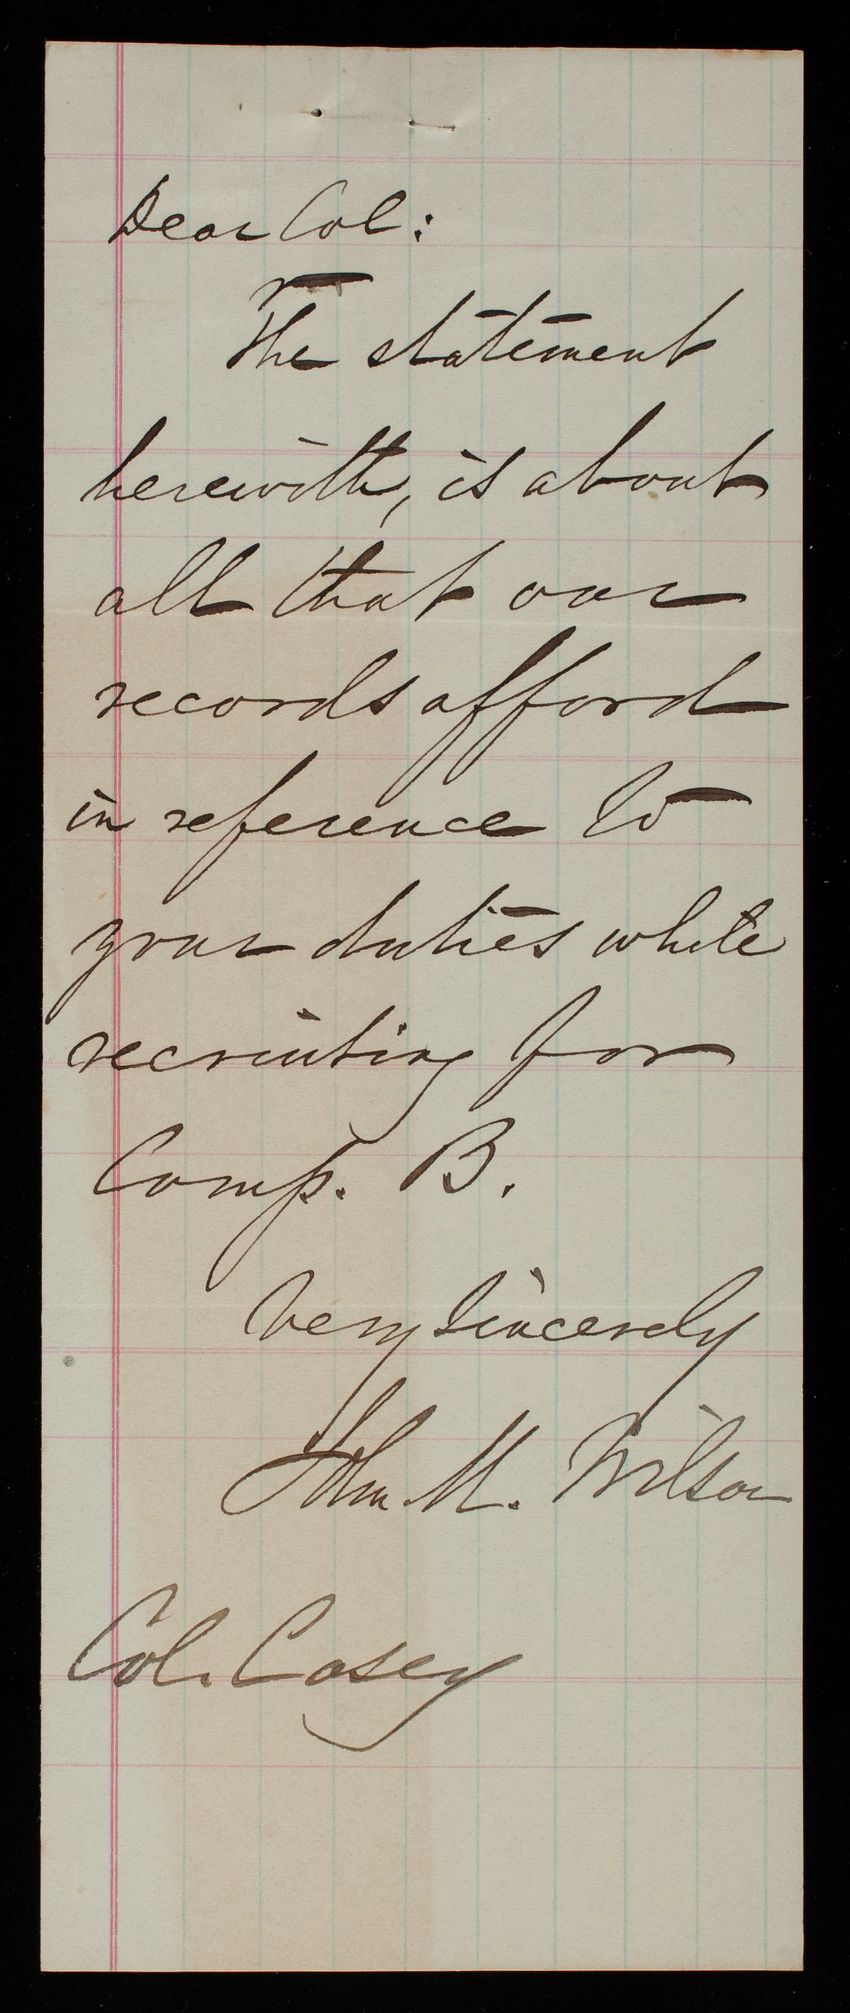 Dear Col:
The statement
herewith, is about
all that our
records afford
in reference to
your duties while
recruiting for
Comp. B.
Very Sincerely
John M. Wilson
Col. Casey